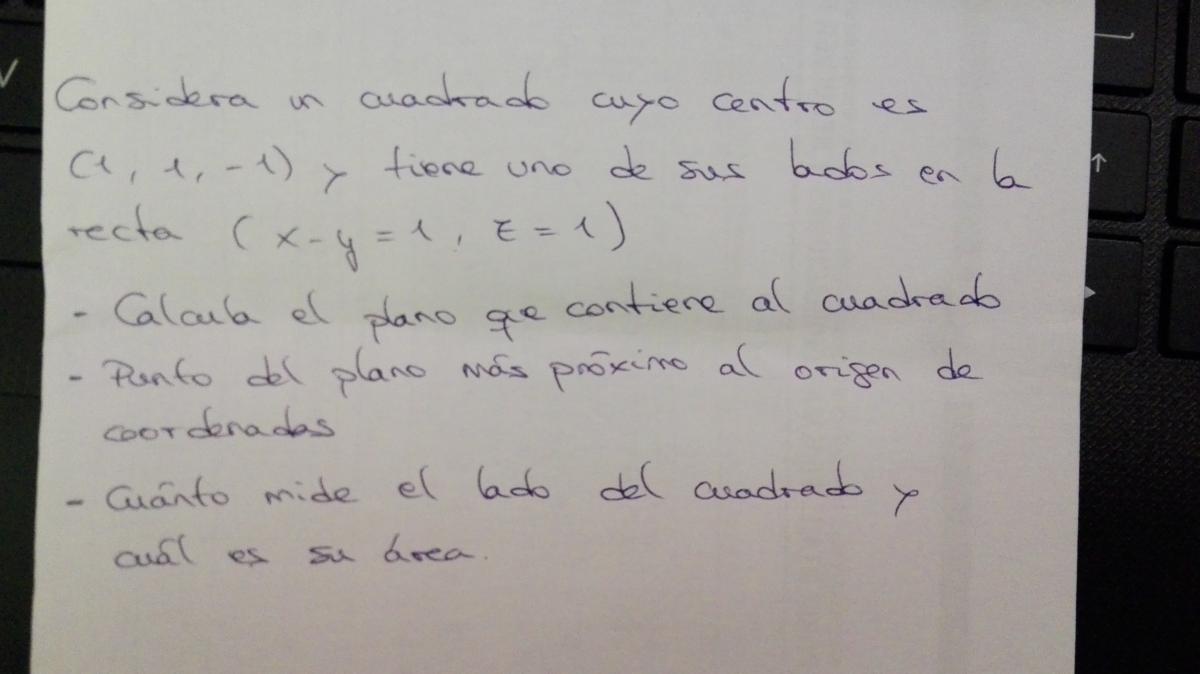 Considera un cuadrado cuyo centro es
(1, 1, -1) y tiene uno de sus lados en la
recta (x-y=1, z=1)
- Calcula el plano que contiene al cuadrado
- Punto del plano más próximo al origen de
coordenadas
- Cuánto mide el lado del cuadrado y
cuál es su área.